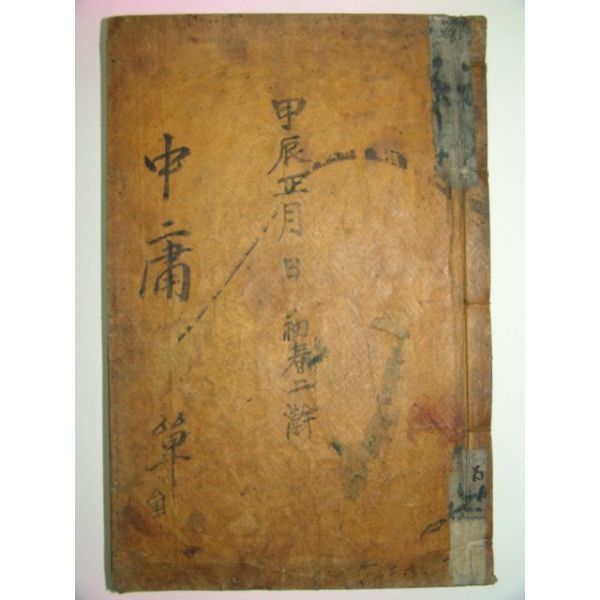 百
甲辰正月 日 初春上澣
中庸 單